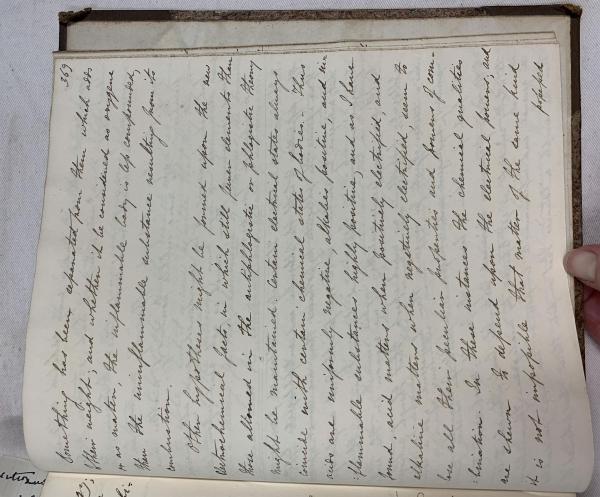 369
Something has been separated from them which adds
their weight; and whether it be considered as oxygene
or as matter, the inflammable body is less compounded,
than the uninflammable substance resulting from its
combustion.
Other hypotheses might be formed upon the new
electrochemical facts, in which still fewer elements than
those allowed in the antiphlogistic or phlogistic theory
might be maintained. Certain electrical states always
coincide with certain chemical states of bodies. Thus
acids are uniformly negative, alkalies positive, and in-
flammable substances highly positive; and as I have
found, acid matters when positively electrified, and
alkaline matters when negatively electrified, seem to
lose all their peculiar properties and powers of com-
bination. In these instances the chemical qualities
are shewn to depend upon the electrical powers; and
it is not impossible that matter of the same kind
possessed